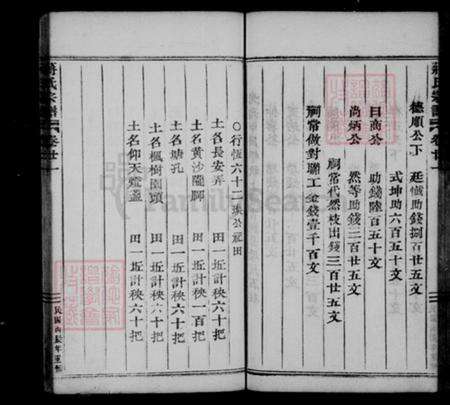 德順公下　廷懺助錢捌百廿五文
式坤助六百五十文
日商公　助錢陸百五十文
尚炳公　然等助錢三百廿五文
祠常代然枝出錢三百廿五文
祠常做對聯工金錢壹千百文
○行恆六十一 公祀田
土名長安弄　田一坵計秧六十把
土名黃沙隴脚　田一坵計秧一百把
土名塘孔　田一坵計秧六十把
土名楓樹園頭　田一坵計秧六十把
土名仰天燈盞　田一坵計秧六十把
蔣氏宗譜　卷廿一
民國丙辰年重修